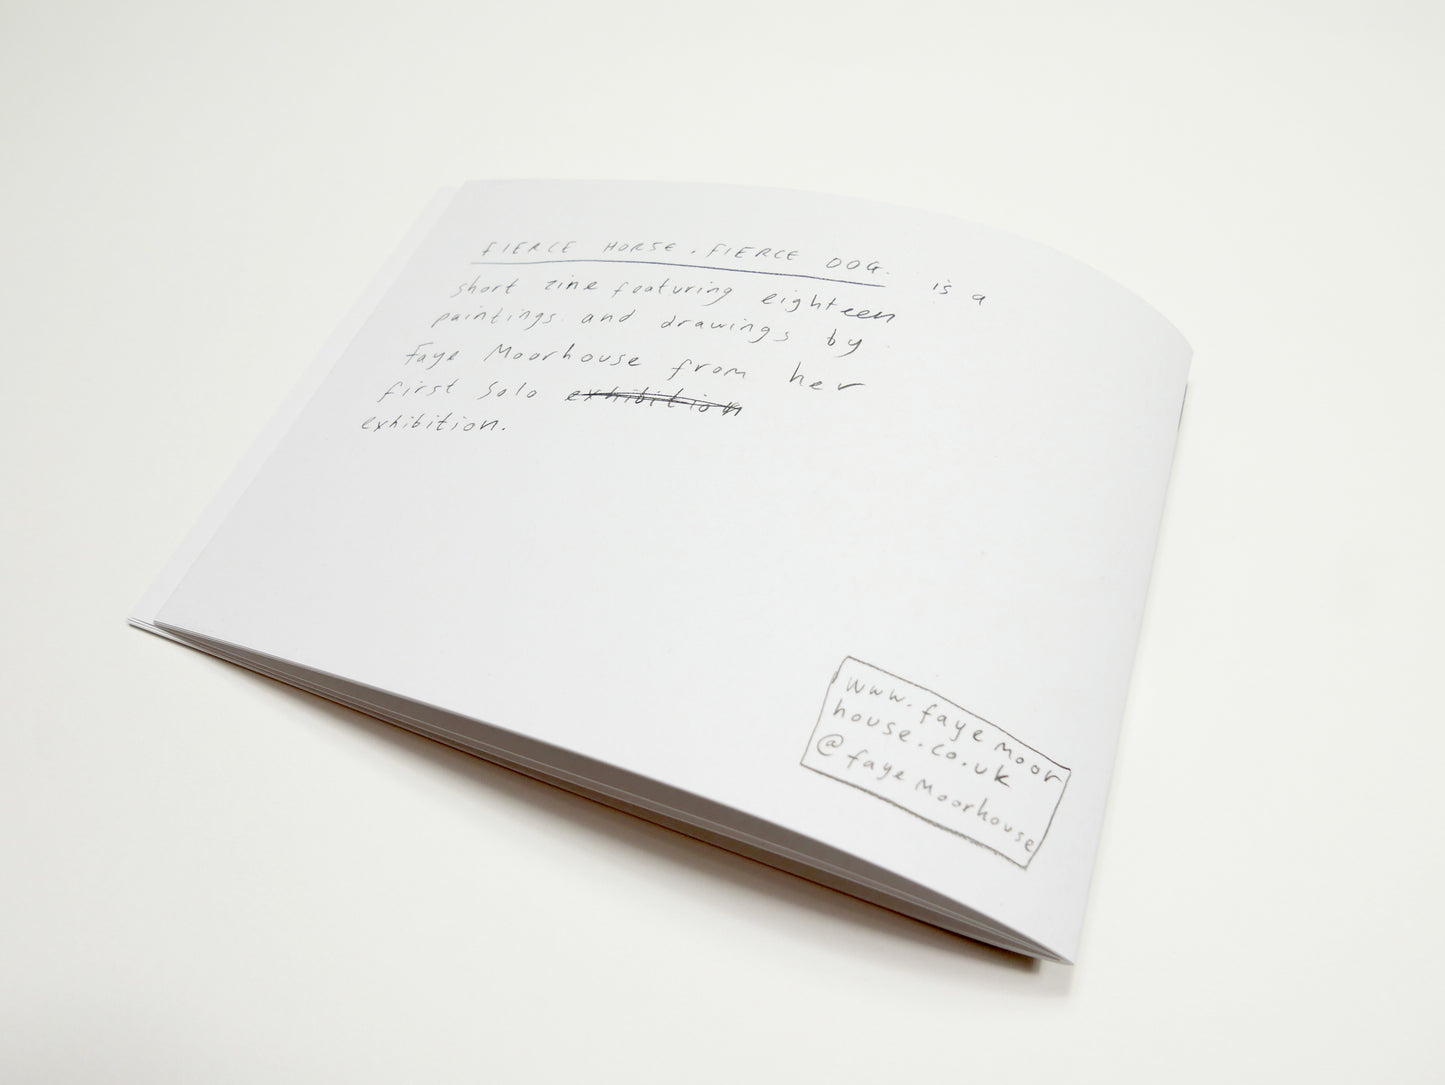 FIERCE HORSE. FIERCE DOG. is a
short zine featuring eighteen
paintings and drawings by
Faye Moorhouse from her
first solo exhibition
exhibition.
www.fayemoor
house.co.uk
@fayemoorhouse